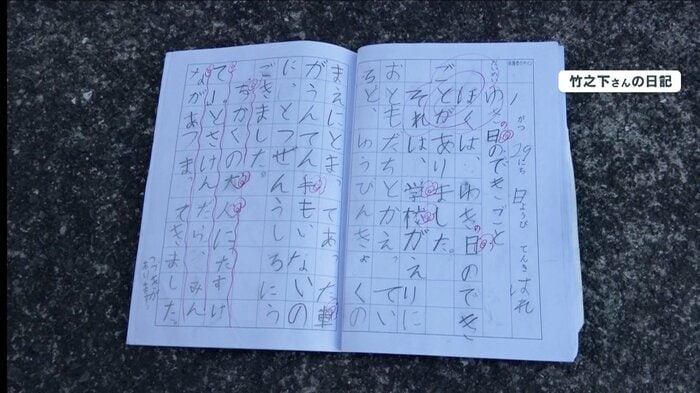 竹之下さんの日記
1がつ29にち日ようびてんきはれ
だいめい
ゆきの日のできごと
ぼくは、ゆきの日のできご
とがありました。
それは、学校がえりに
おともだちとかえっていい
ると、ゆうびんきょくの
まえにとまってあった車
がうんてん手もいないの
に、とつぜんうしろにう
ごきました。
ちかくの大人にたすけ
て!とさけんだら、みん
ながあつまってきました。
つづきが
あります